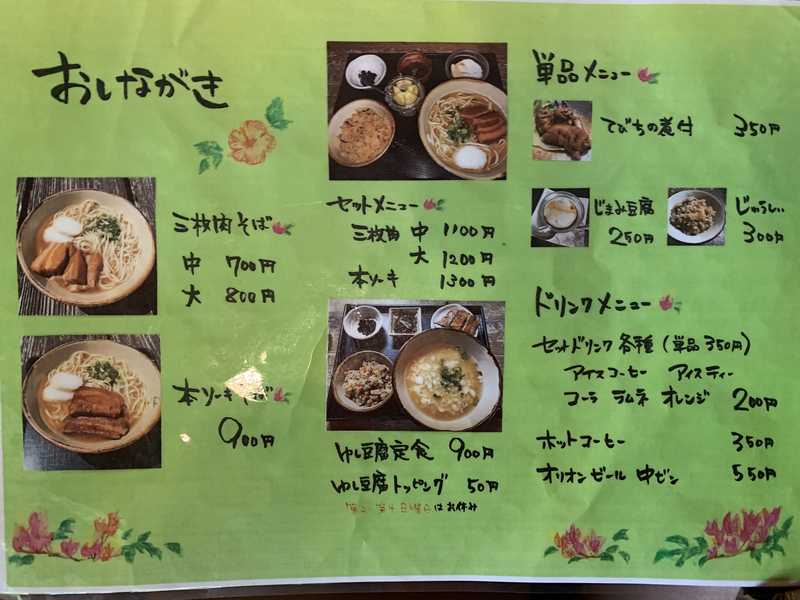 おしながき
三枚肉そば
中 700円
大 800円
本ソーキそば
900円
セットメニュー
三枚肉 中 1100円
大 1200円
本ソーキ 1300円
ゆし豆腐定食 900円
ゆし豆腐トッピング 50円
第2、第4日曜日はお休み
単品メニュー
てびちの煮付 350円
じまみ豆腐
250円
じゅうしぃ
300円
ドリンクメニュー
セットドリンク各種(単品350円)
アイスコーヒー アイスティー
コーラ ラムネ オレンジ 200円
ホットコーヒー 350円
オリオンビール 中ビン 550円